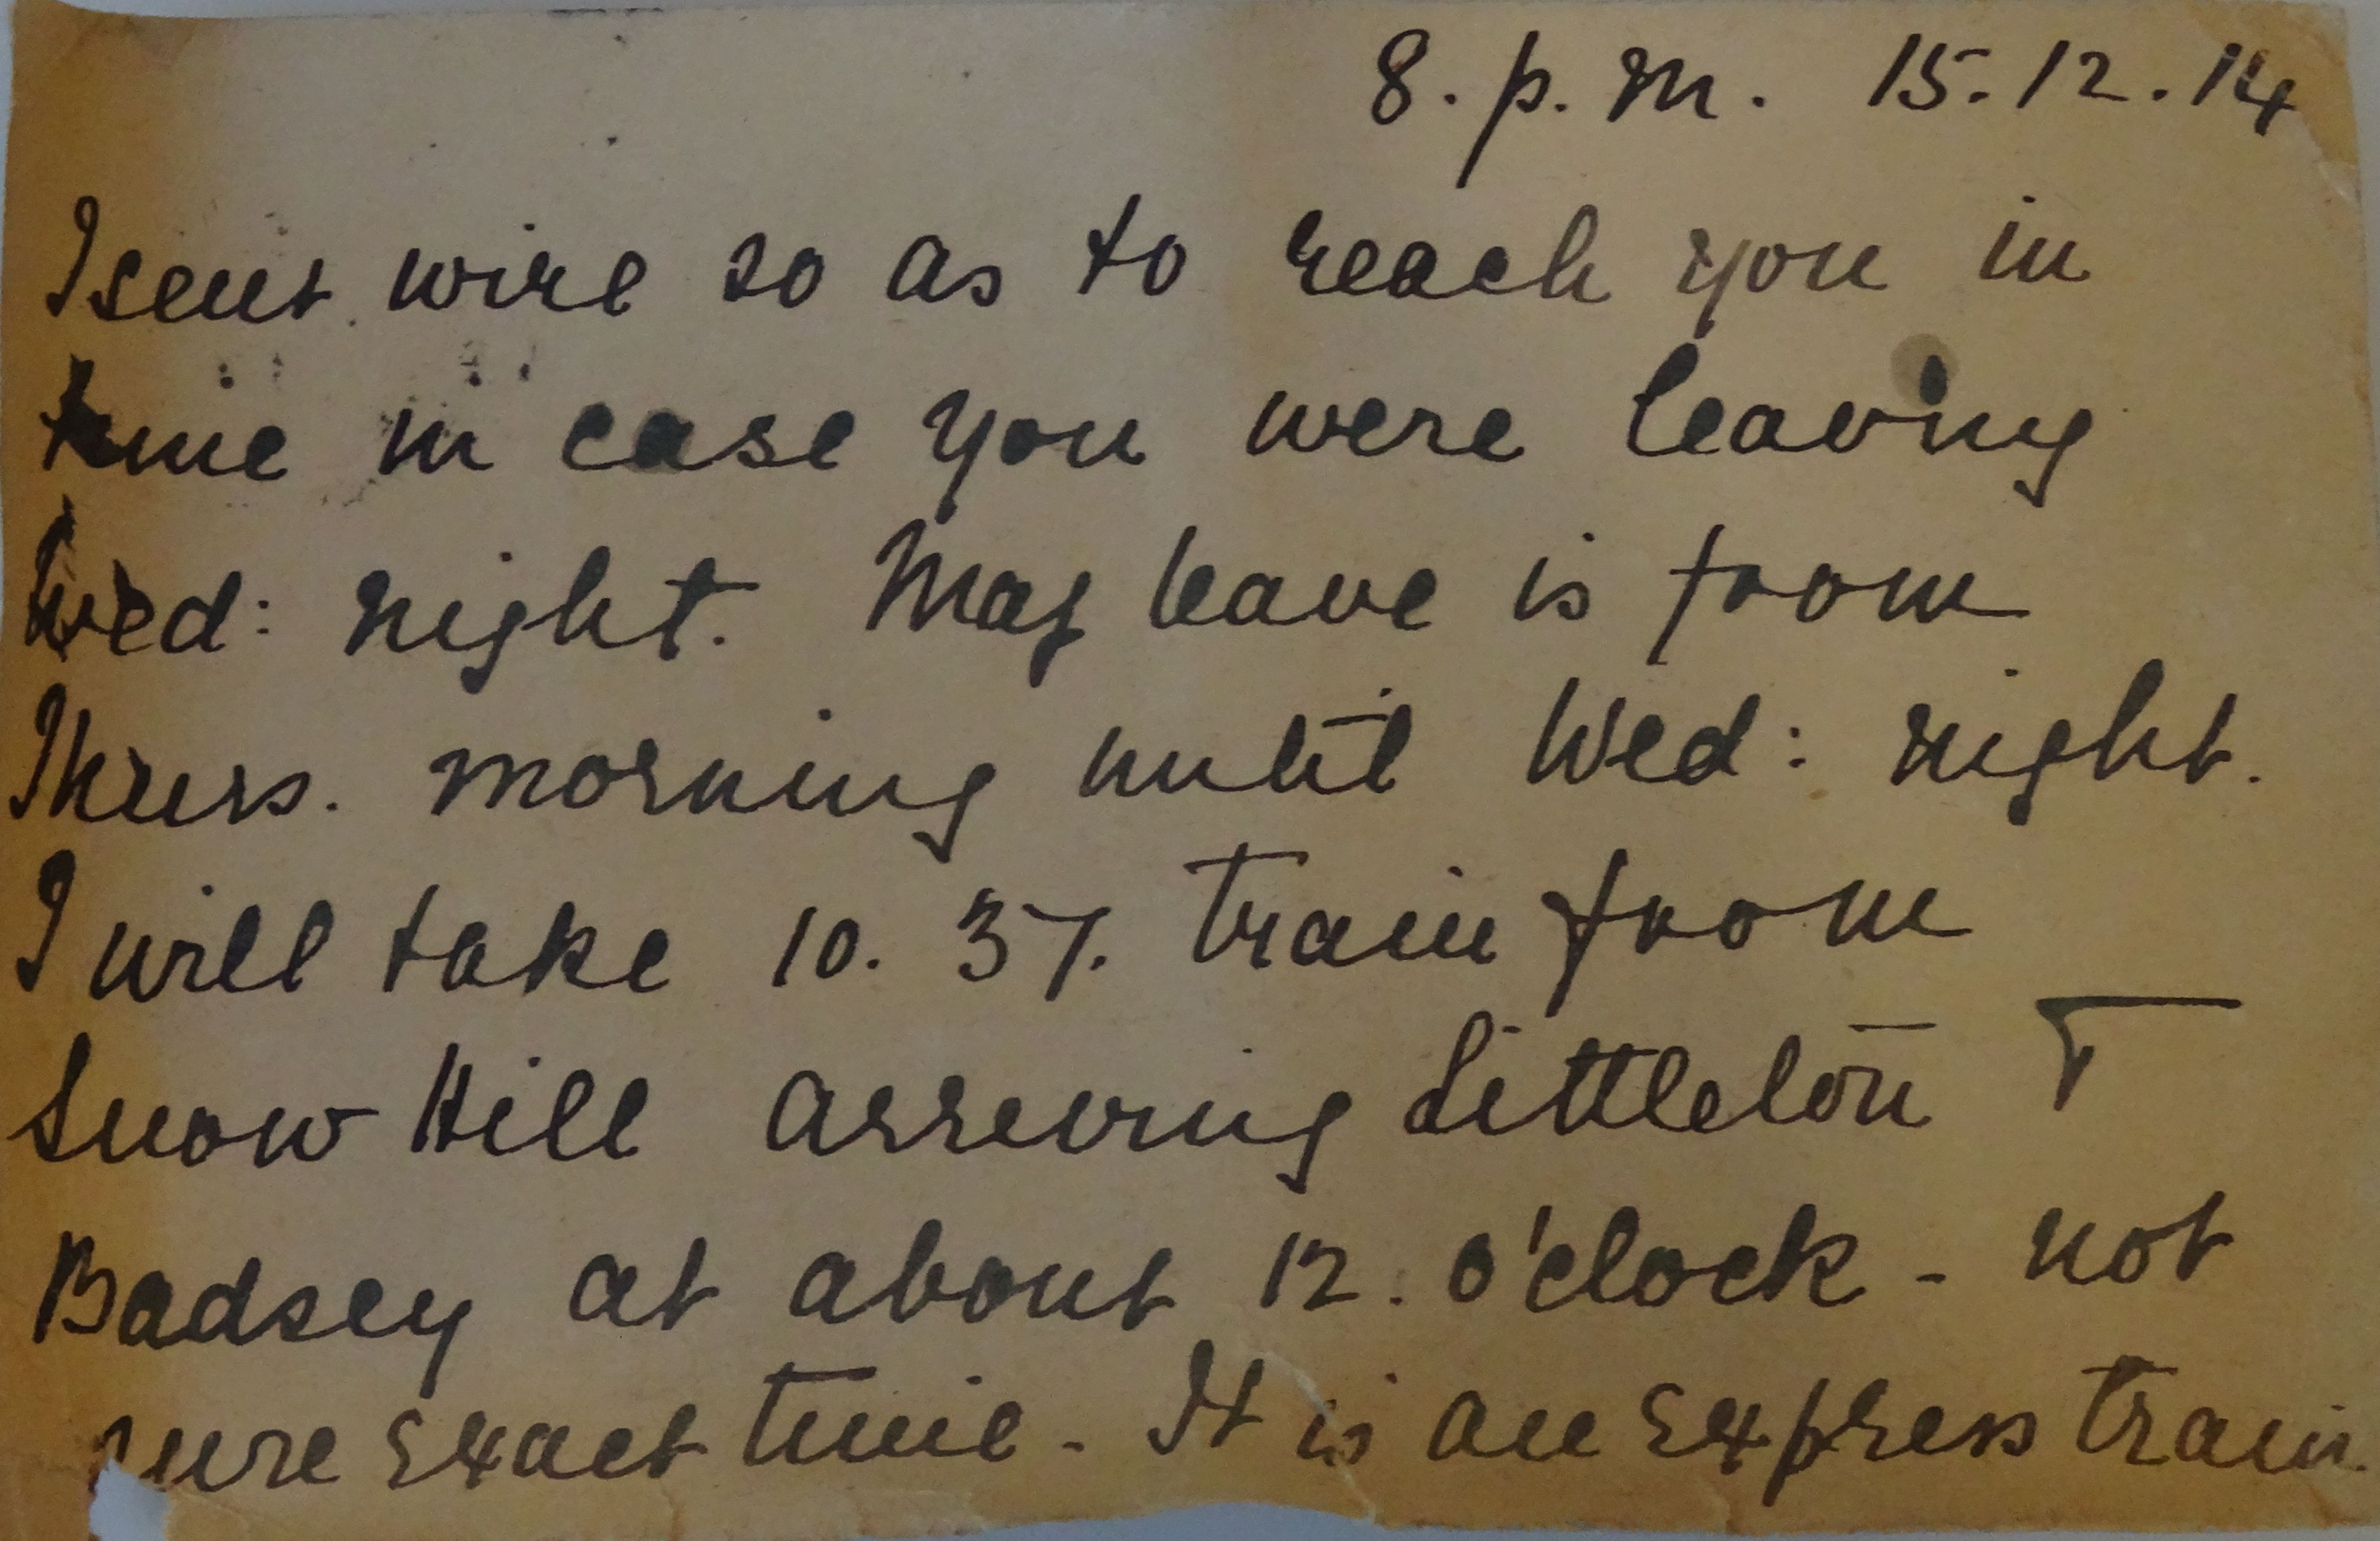 8. p. m. 15.12.14
I sent wire so as to reach you in
time in case you were leaving
Wed: night. May leave is from
Thurs. morning until Wed: night.
I will take 10. 37. train from
Snow Hill arriving Littleton &
Badsey at about 12. o'clock - not
sure exact time. It is an express train